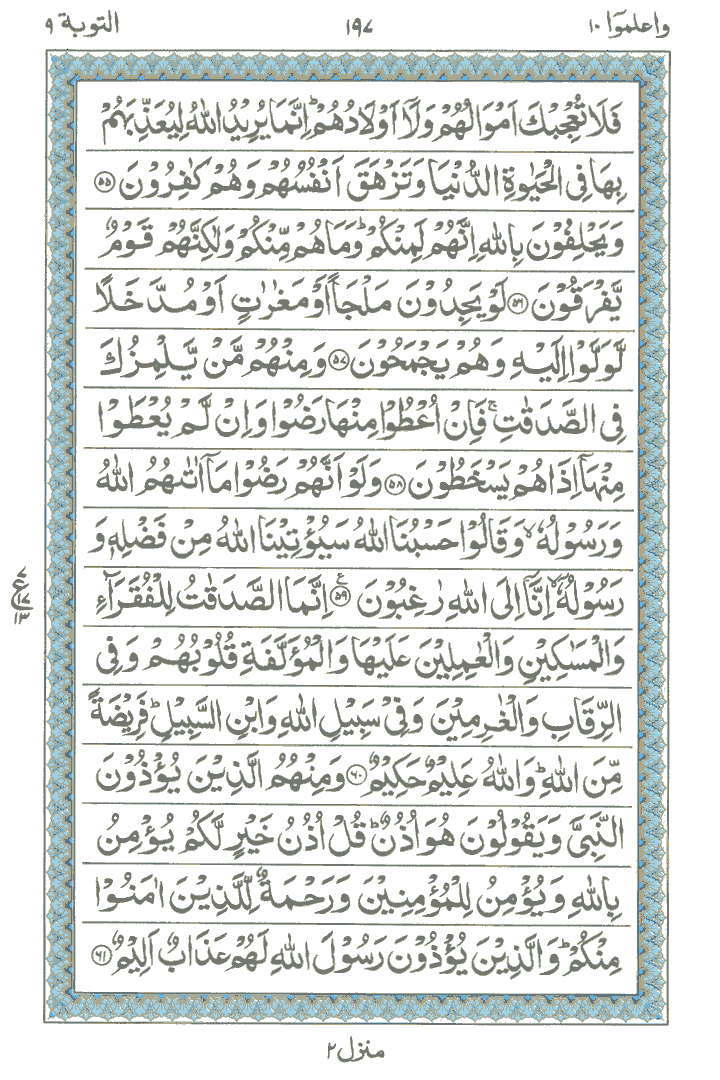 واعلموٓا ١٠ ١٩٧ التوبة ٩
فَلَا تُعْجِبْكَ اَمْوَالُهُمْ وَلَآ اَوْلَادُهُمْ ؕ اِنَّمَا يُرِيْدُ اللّٰهُ لِيُعَذِّبَهُمْ
بِهَا فِى الْحَيٰوةِ الدُّنْيَا وَتَزْهَقَ اَنْفُسُهُمْ وَهُمْ كٰفِرُوْنَ ۝٥٥
وَيَحْلِفُوْنَ بِاللّٰهِ اِنَّهُمْ لَمِنْكُمْ ؕ وَمَا هُمْ مِّنْكُمْ وَلٰكِنَّهُمْ قَوْمٌ
يَّفْرَقُوْنَ ۝٥٦ لَوْ يَجِدُوْنَ مَلْجَاً اَوْ مَغٰرٰتٍ اَوْ مُدَّخَلًا
لَّوَلَّوْا اِلَيْهِ وَهُمْ يَجْمَحُوْنَ ۝٥٧ وَمِنْهُمْ مَّنْ يَّلْمِزُكَ
فِى الصَّدَقٰتِ ۚ فَاِنْ اُعْطُوْا مِنْهَا رَضُوْا وَاِنْ لَّمْ يُعْطَوْا
مِنْهَآ اِذَا هُمْ يَسْخَطُوْنَ ۝٥٨ وَلَوْ اَنَّهُمْ رَضُوْا مَآ اٰتٰىهُمُ اللّٰهُ
وَرَسُوْلُهٗ ۙ وَقَالُوْا حَسْبُنَا اللّٰهُ سَيُؤْتِيْنَا اللّٰهُ مِنْ فَضْلِهٖ وَ
رَسُوْلُهٗۤ ۙ اِنَّاۤ اِلَى اللّٰهِ رٰغِبُوْنَ ۝٥٩ اِنَّمَا الصَّدَقٰتُ لِلْفُقَرَآءِ
ع ٧ ١٧ ١٣
وَالْمَسٰكِيْنِ وَالْعٰمِلِيْنَ عَلَيْهَا وَالْمُؤَلَّفَةِ قُلُوْبُهُمْ وَفِى
الرِّقَابِ وَالْغٰرِمِيْنَ وَفِىْ سَبِيْلِ اللّٰهِ وَابْنِ السَّبِيْلِ ؕ فَرِيْضَةً
مِّنَ اللّٰهِ ؕ وَاللّٰهُ عَلِيْمٌ حَكِيْمٌ ۝٦٠ وَمِنْهُمُ الَّذِيْنَ يُؤْذُوْنَ
النَّبِىَّ وَيَقُوْلُوْنَ هُوَ اُذُنٌ ؕ قُلْ اُذُنُ خَيْرٍ لَّكُمْ يُؤْمِنُ
بِاللّٰهِ وَيُؤْمِنُ لِلْمُؤْمِنِيْنَ وَرَحْمَةٌ لِّلَّذِيْنَ اٰمَنُوْا
مِنْكُمْ ؕ وَالَّذِيْنَ يُؤْذُوْنَ رَسُوْلَ اللّٰهِ لَهُمْ عَذَابٌ اَلِيْمٌ ۝٦١
منزل ٢